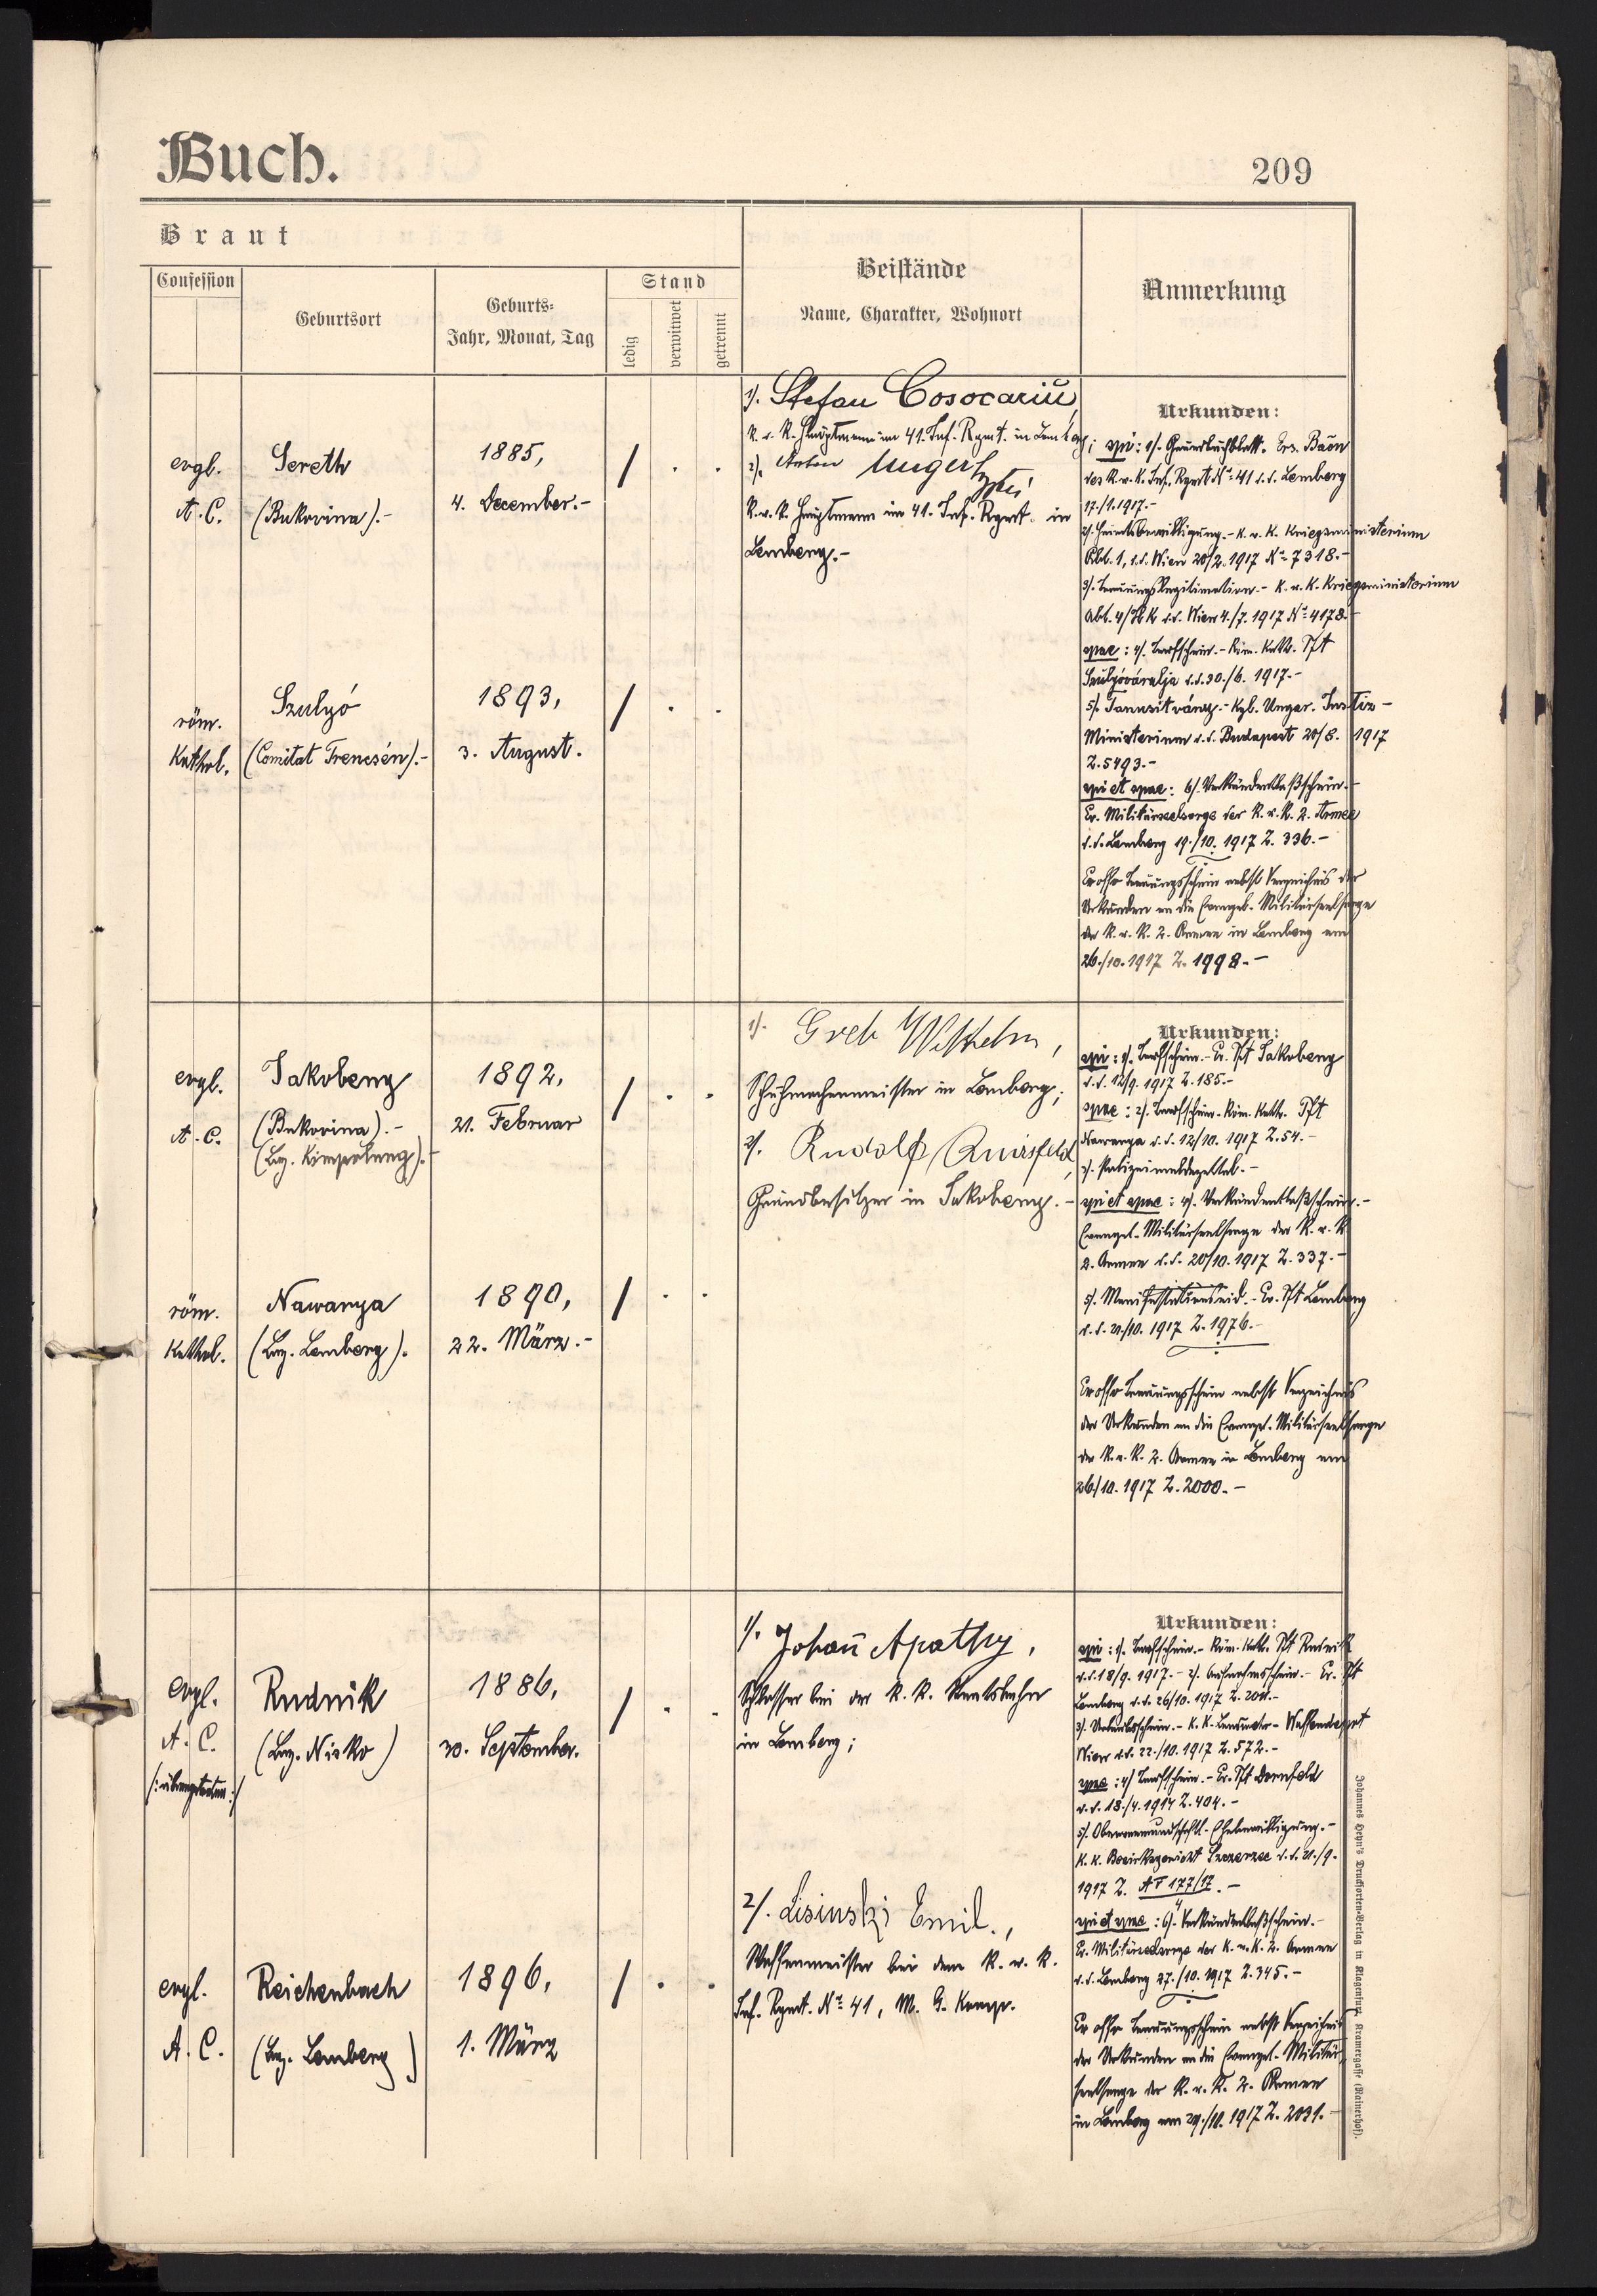 Buch.
209
Braut
Confession
Geburtsort
Geburts-
Jahr, Monat, Tag
Stand
ledig
verwitwet
getrennt
Beistände
Name, Charakter, Wohnort
Anmerkung
evgl.
A. C.
Sereth
(Bukovina).-
1885,
4. December.-
/ . .
röm.
Kathol.
Szulyó
(Comitat Trencsén).-
1893,
3. August.
/ . .
1). Stefan Cosocariu,
K. u. K. Hauptmann im 41. Inf. Rgmt. in Lemberg;
2). Anton
K. u. K. Hauptmann im 41. Inf. Rgmt. in
Lemberg.-
Urkunden:
spi: 1). Grundbuchblatt. Ers. Baōn
des K. u. K. Inf. Rgmt No 41 d. d. Lemberg
17./1. 1917.-
2). Heiratsbewilligung.- K. u. K. Kriegsministerium
Abt. 1, d. d. Wien 20/2. 1917 No 7318.-
3). Trauungslegitimation.- K. u. K. Kriegsministerium
Abt. 4/ d. d. Wien 4./7. 1917 No 4178.-
spae: 4). Taufschein.- Röm. Kath. Pft
Szulyóváralja d. d. 30./6. 1917.-
5). Tanusitvány.- Kgl. Ungar. Justiz-
Ministerium d. d. Budapest 20/8. 1917
Z. 5493.-
spi et spae: 6). Verkündentlaßschein.-
Ev. Militärseelsorge der K. u. K. 2. Armee
d. d. Lemberg 19./10. 1917 Z. 336.-
Ex offo Trauungsschein nebst Verzeichnis der
Urkunden an die Evangel. Militärseelsorge
der K. u. K. 2. Armee in Lemberg am
26./10. 1917 Z. 1998.-
evgl.
A. C.
Jakobeny
(Bukovina).-
(Bez. Kimpolung).-
1892,
21. Februar
/ . .
röm.
Kathol.
Nawarya
(Bez. Lemberg).
1890,
22. März.-
/ . .
1). Greb Wilhelm,
Schuhmachermeister in Lemberg;
2). Rudolf Quirsfeld,
Grundbesitzer in Jakobeny.-
Urkunden:
spi: 1). Taufschein.- Ev. Pft Jakobeny
d. d. 12/9. 1917 Z. 185.-
spae: 2). Taufschein- Röm. Kath. Pft
Nawarya d. d. 12/10. 1917 Z. 54.-
3). Polizeimeldezettel.-
spi et spae: 4). Verkündentlaßschein.-
Evangel. Militärseelsorge der K. u. K.
2. Armee d. d. 20/10. 1917 Z. 337.-
5). Manifestationseid.- Ev. Pft Lemberg
d. d. 21/10. 1917 Z. 1976.-
Ex offo Trauungsschein nebst Verzeichnis
der Urkunden an die Evangel. Militärseelsorge
der K. u. K. 2. Armee in Lemberg am
26/10. 1917 Z. 2000.-
Evgl.
A. C.
/:übergetreten:/
Rudnik
(Bez. Nisko)
1886,
30. September.
/ . .
evgl.
A. C.
Reichenbach
(Bez. Lemberg)
1896,
1. März
/ . .
1/. Johañ Apathy,
Schlosser bei der K. K. Staatsbahn
in Lemberg;
2/. Lisinski Emil.,
Waffenmeister bei dem K. u. K.
Inf. Rgmt. No 41, M. G. Komp.
Urkunden:
spi: 1). Taufschein.- Röm. Kath. Pft Rudnik
d. d. 18/9. 1917.- 2). Aufnahmsschein.- Ev. Pft
Lemberg d. d. 26/10. 1917 Z.
3). Urlaubsschein.- K. K. Landwehr- Waffendepot
Wien d. d. 22./10. 1917 Z. 572.-
spae: 4) Taufschein.- Ev. Pft Dornfeld
d. d. 18./4. 1914 Z. 404.-
5). Obervormundschftl. Ehebewilligung.-
K. K. Bezirksgericht Szczerzec d. d. 21./9.
1917 Z. 177/17.-
spi et spae: 6). Verkündentlaßschein.-
Ev. Militärseelsorge der K. u. K. 2. Armee
d. d. Lemberg 27./10. 1917 Z. 345.-
Ex offo Trauungsschein nebst Verzeichnis
der Urkunden an die Evangel. Militär-
seelsorge der K. u. K. 2. Armee
in Lemberg am 29./10. 1917 Z. 2031.-
Johannes Heyn's Drucksorten-Verlag in Klagenfurt, Kramergasse (Rainerhof).